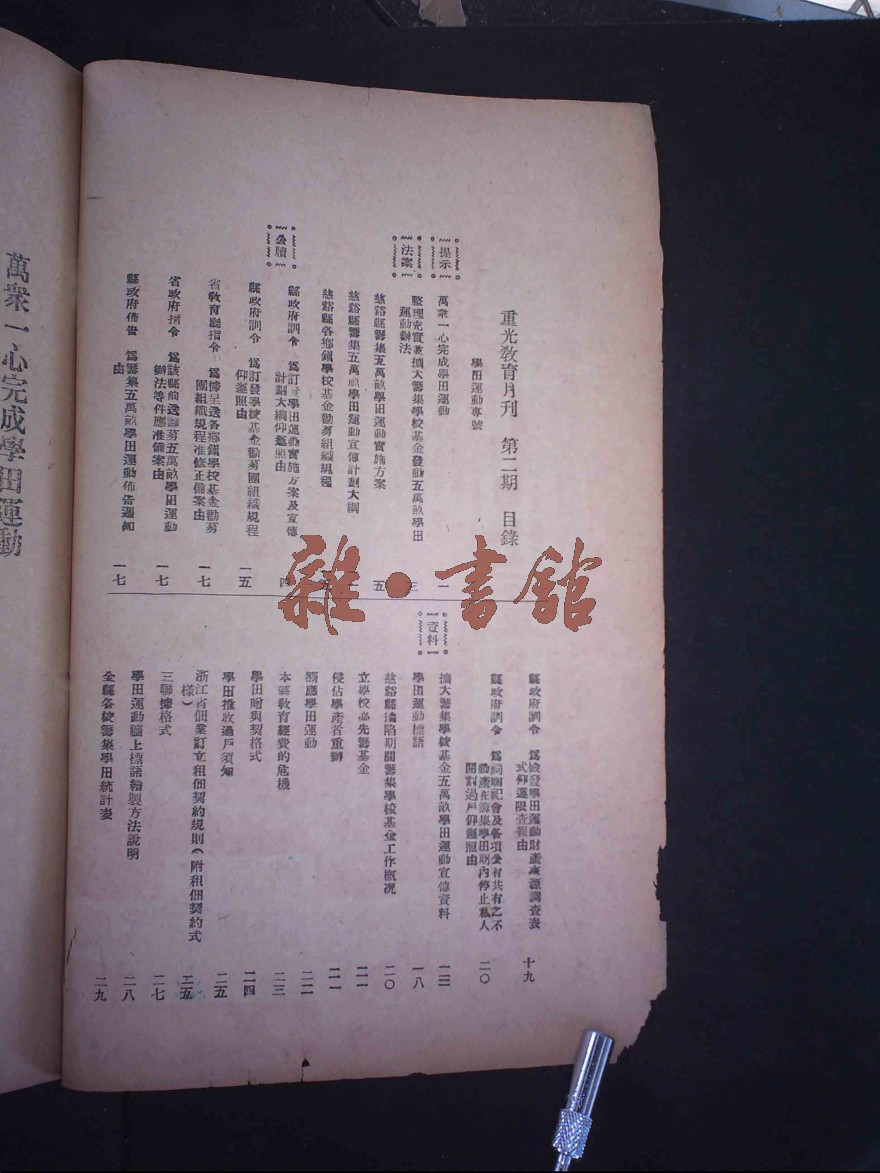 重光教育月刊　第二期　目錄
學田運動專號
提示
萬衆一心完成學田運動
一
法案
整理充實並擴大籌集學校基金發動五萬畝學田
運動辦法
三
慈谿縣籌集五萬畝學田運動實施方案
五
慈谿縣籌集五萬畝學田運動宣傳計劃大綱
慈谿縣各鄉鎮學校基金勸募組織規程
公牘
縣政府訓令　爲訂發學田運動實施方案及宣傳
計劃大綱仰遵照由
四
縣政府訓令　爲訂發學校基金勸募團組織規程
仰遵照由
一五
省教育廳指令　爲據呈送各鄉鎮學校基金勸募
團組織規程准修正備案由
一七
省政府指令　爲該縣前送籌募五萬畝學田運動
辦法等件應准備案由
一七
縣政府佈告　爲籌集五萬畝學田運動佈告週知
由
一七
縣政府訓令　爲檢發學田運動財產來源調查表
式仰遵限查報由
十九
縣政府訓令　爲祠廟祀會及各項公有共有之不
動產在籌集學田期內停止私人
開割過戶仰遵照由
二〇
資料
擴大籌集學校基金五萬畝學田運動宣傳資料
學田運動標語
一八
慈谿縣淪陷期間籌集學校基金工作概况
二〇
立學校必先籌基金
二一
侵佔學產者重辦
二一
響應學田運動
二二
本縣教育經費的危機
二三
學田贈與契格式
二四
學田推收過戶須知
二五
浙江省佃業訂立租佃契約規則（附租佃契約式
樣）
二五
三聯據格式
二七
學田運動牆上標語繪製方法說明
二八
全縣各校籌集學田統計表
二九
萬衆一心完成學田運動
雜·書館